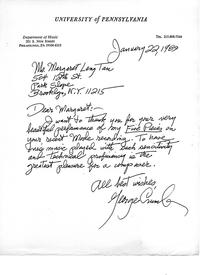 UNIVERSITY of PENNSYLVANIA
Department of Music
201 S. 34th Street
PHILADELPHIA, PA 19104-6313
January 22, 1989
Ms. Margaret Leng Tan
Park Slope
Brooklyn, N.Y. 11215
Dear Margaret:—
I want to thank you for your very
beautiful performance of my Five Pieces on
your recent Mode recording. To have
my music played with such sensitivity
and technical proficiency is the
greatest pleasure for a composer.
All best wishes,
George Crumb